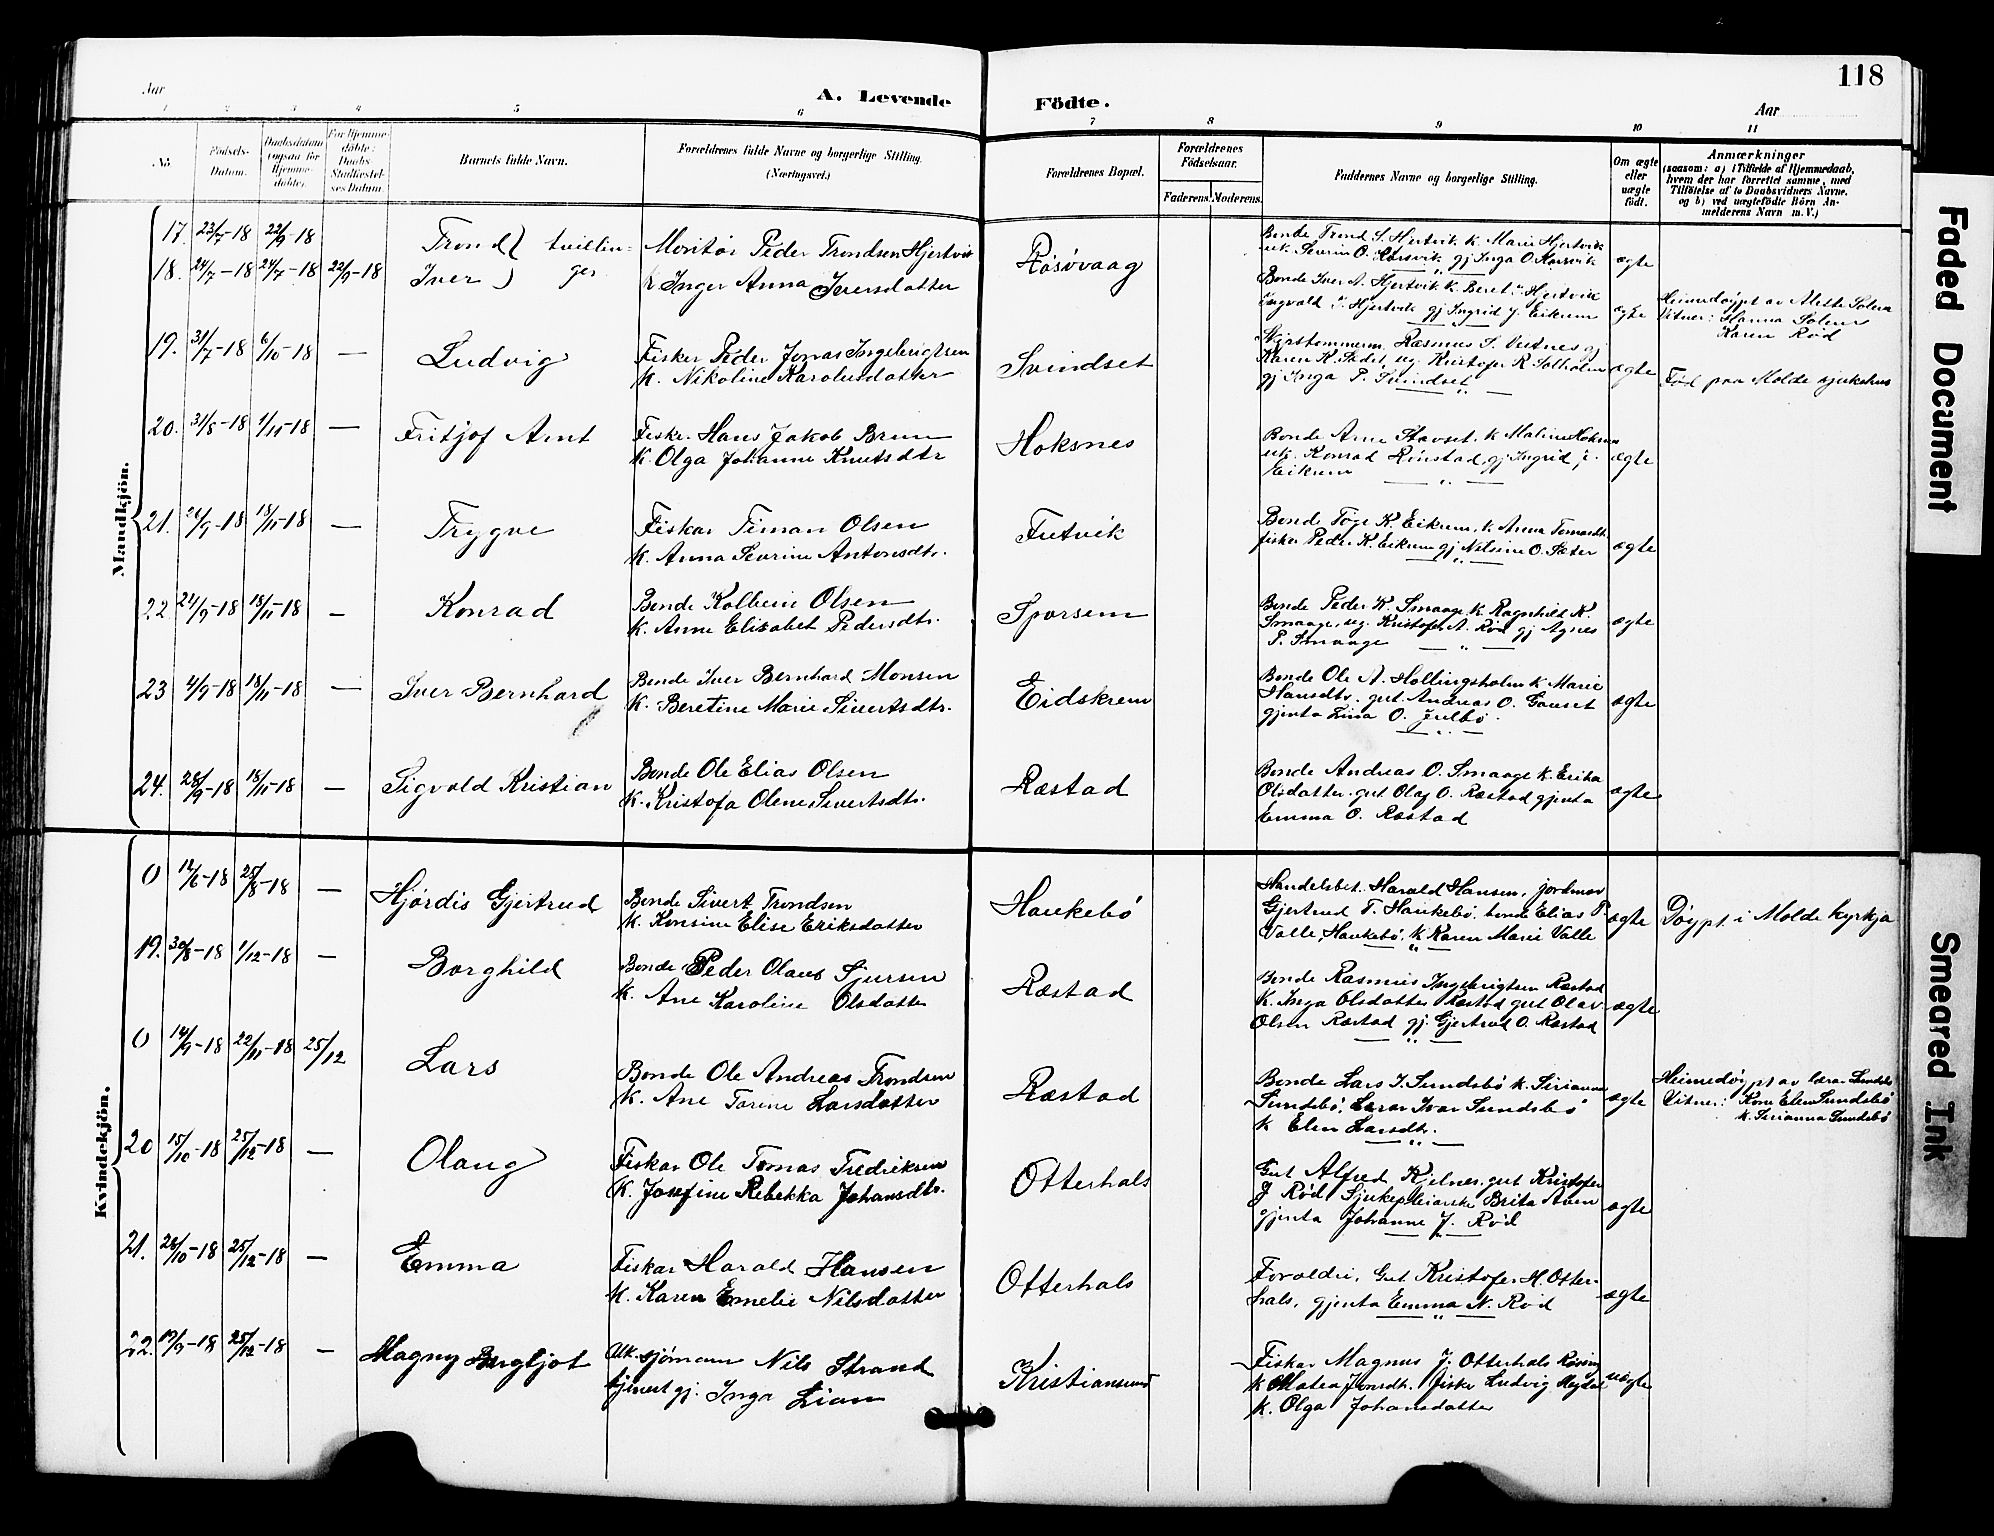 118
Aar
A. Levende Födte.
Aar
1 2 3 4 5 6 7 8 9 10 11
No
Födsels-Datum.
Daabsdatum (ogsaa for Hjemme-döbte).
For Hjemme-döbte: Daabs-Stadfæstel-ses Datum.
Barnets fulde Navn.
Forældrenes fulde Navne og borgerlige Stilling. (Næringsvei.)
Forældrenes Bopæl.
Forældrenes Födselsaar.
Faderens. Moderens.
Faddernes Navne og borgerlige Stilling.
Om ægte eller uægte födt.
Anmærkninger
(saasom: a) i Tilfælde af Hjemmedaab,
hvem der har forrettet samme, med
Tilföielse af to Daabsvidners Navne.
og b) ved uægtefödte Börn An-
melderens Navn m. V.)
Mandkjön.
17. 23/7-18 22/9-18
Trond } tvillin-
Montør Peder Trondsen Hjertvik
Røsøvaag
Bonde Trond S. Hjertvik k. Marie Hjertvik
uk. Severin O. Harsvik gj Inga O. Harsvik
ægte
18. 24/7-18 24/7-18 22/9-18
Iver } ger
k Inger Anna Iversdatter
Bonde Iver A. Hjertvik k. Beret Hjertvik
Ingvald Hjertvik gj Ingrid J. Eikrem
ægte
Heimedøypt av Alette Solem
Vitner: Hanna Solem
Karen Rød
19. 31/7-18 6/10-18 —
Ludvig
Fisker Peder Jonas Ingebrigtsen
k. Nikoline Karolusdatter
Svindset
Rasmus S. Vestnes gj
Karen K. ug. Kristofer R Solholm
gj Inga P. Svindset
ægte
Fød paa Molde sjukehus
20. 31/8-18 1/11-18 —
Fritjof Arnt
Fisker Hans Jakob Brun
k. Olga Johanne Knutsdtr
Hoksnes
Bonde Arne Stavset. k Maline Hoksnes
uk. Konrad Rønstad, gj Ingrid J.
Eikrem
ægte
21. 21/9-18 18/11-18 —
Trygve
Fiskar Timan Olsen
k. Anna Severine Antonsdtr.
Futvik
Bonde Tøge K. Eikrem, k. Anna
fisker Peder K. Eikrem gj Nelsine O. Sæter
ægte
22 24/9-18 18/11-18 —
Konrad
Bonde Kolbein Olsen
k. Anne Elisabet Pedersdtr.
Sporsem
Bonde Peder K. Smaage k Ragnhild K.
Smaage, ug. Kristofer A. Rød gj Agnes
P. Smaage
ægte
23 4/9-18 18/11-18 —
Iver Bernhard
Bonde Iver Bernhard Monsen
k. Beretine Marie Sivertsdtr.
Eidskrem
Bonde Ole A. Hollingsholm k Marie
Hansdtr. gut Andreas O. Gauset
gjenta Lina O. Julbø.
ægte
24. 28/9-18 18/11-18 —
Sigvald Kristian
Bonde Ole Elias Olsen
k. Kristofa Olene Sivertsdtr.
Ræstad
Bonde Andreas O. Smaage k. Erika
Olsdatter. gut Olaf O. Ræstad gjenta
Emma O. Ræstad
ægte
Kvindekjön.
0 12/6-18 25/8-18 —
Hjørdis Gjertrud
Bonde Sivert Trondsen
k. Konsine Elise Eriksdatter
Haukebø
Handelsbet. Harald Hansen, jordmor
Gjertrud T. Haukebø. bonde Elias P.
Valle, Haukebø, k Karen Marie Valle
ægte
Døypt i Molde kyrkja
19. 30/8-18 1/12-18 —
Borghild
Bonde Peder Olaus Sjursen
k. Ane Karoline Olsdatter
Ræstad
Bonde Rasmus Ingebrigtsen Ræstad
k. Inga Olsdatter Ræstad gut Olav
Olsen Ræstad gj. Gjertrud O. Ræstad
ægte
0 14/9-18 22/11-18 25/12
Lars
Bonde Ole Andreas Trondsen
k. Ane Tarine Larsdatter
Ræstad
Bonde Lars I. Sundsbø k. Sirianna
Sundsbø, Lærar Ivar Sundsbø
k Elen Larsdtr.
ægte
Heimedøypt av lærar Sundsbø
Vitner: Kone Elen Sundsbø
k. Sirianna Sundsbø
20 15/10-18 25/12-18 —
Olaug
Fiskar Ole Tomas Fredriksen
k. Josefine Rebekka Johansdtr.
Otterhals
Gut Alfred Kjelnes, gut Kristofer
J Rød Sjukepleiarske Brita Aven
gjenta Johanne J. Rød
ægte
21. 28/10-18 25/12-18 —
Emma
Fiskar Harald Hansen
k. Karen Emelie Nilsdatter
Otterhals
Foreldri, Gut Kristofer H. Otter-
hals, gjenta Emma N. Rød
ægte
22. 19/9-18 25/12-18 —
Magny Bergljot
Uk. sjømann Nils Strand
tjenestgj. Inga Lian
Kristiansund
Fiskar Magnus J. Otterhals
k Matea Jonsdtr. fisker Ludvig
k. Olga Johansdatter
uægte
Faded Document
Smeared Ink